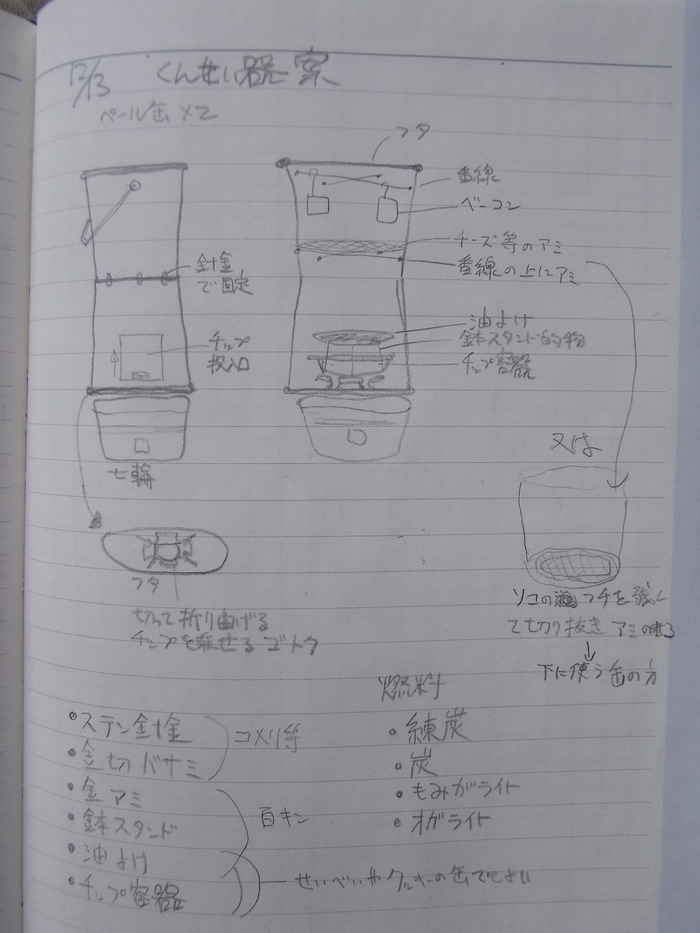 12/13 くんせい器案
ペール缶×2
フタ
番線
ベーコン
チーズ等のアミ
番線の上にアミ
針金
で固定
チップ
投入口
油よけ
鉢スタンド的物
チップ容器
七輪
又は
フタ
切って折り曲げる
チップを乗せるゴトク
ソコのフチを残し
て切り抜きアミのせる
下に使う缶の方
・ステン針金
・金切バサミ
コメリ等
・金アミ
・鉢スタンド
・油よけ
・チップ容器
百キン
せんべいやクッキーの缶でもよい
燃料
・練炭
・炭
・もみがライト
・オガライト